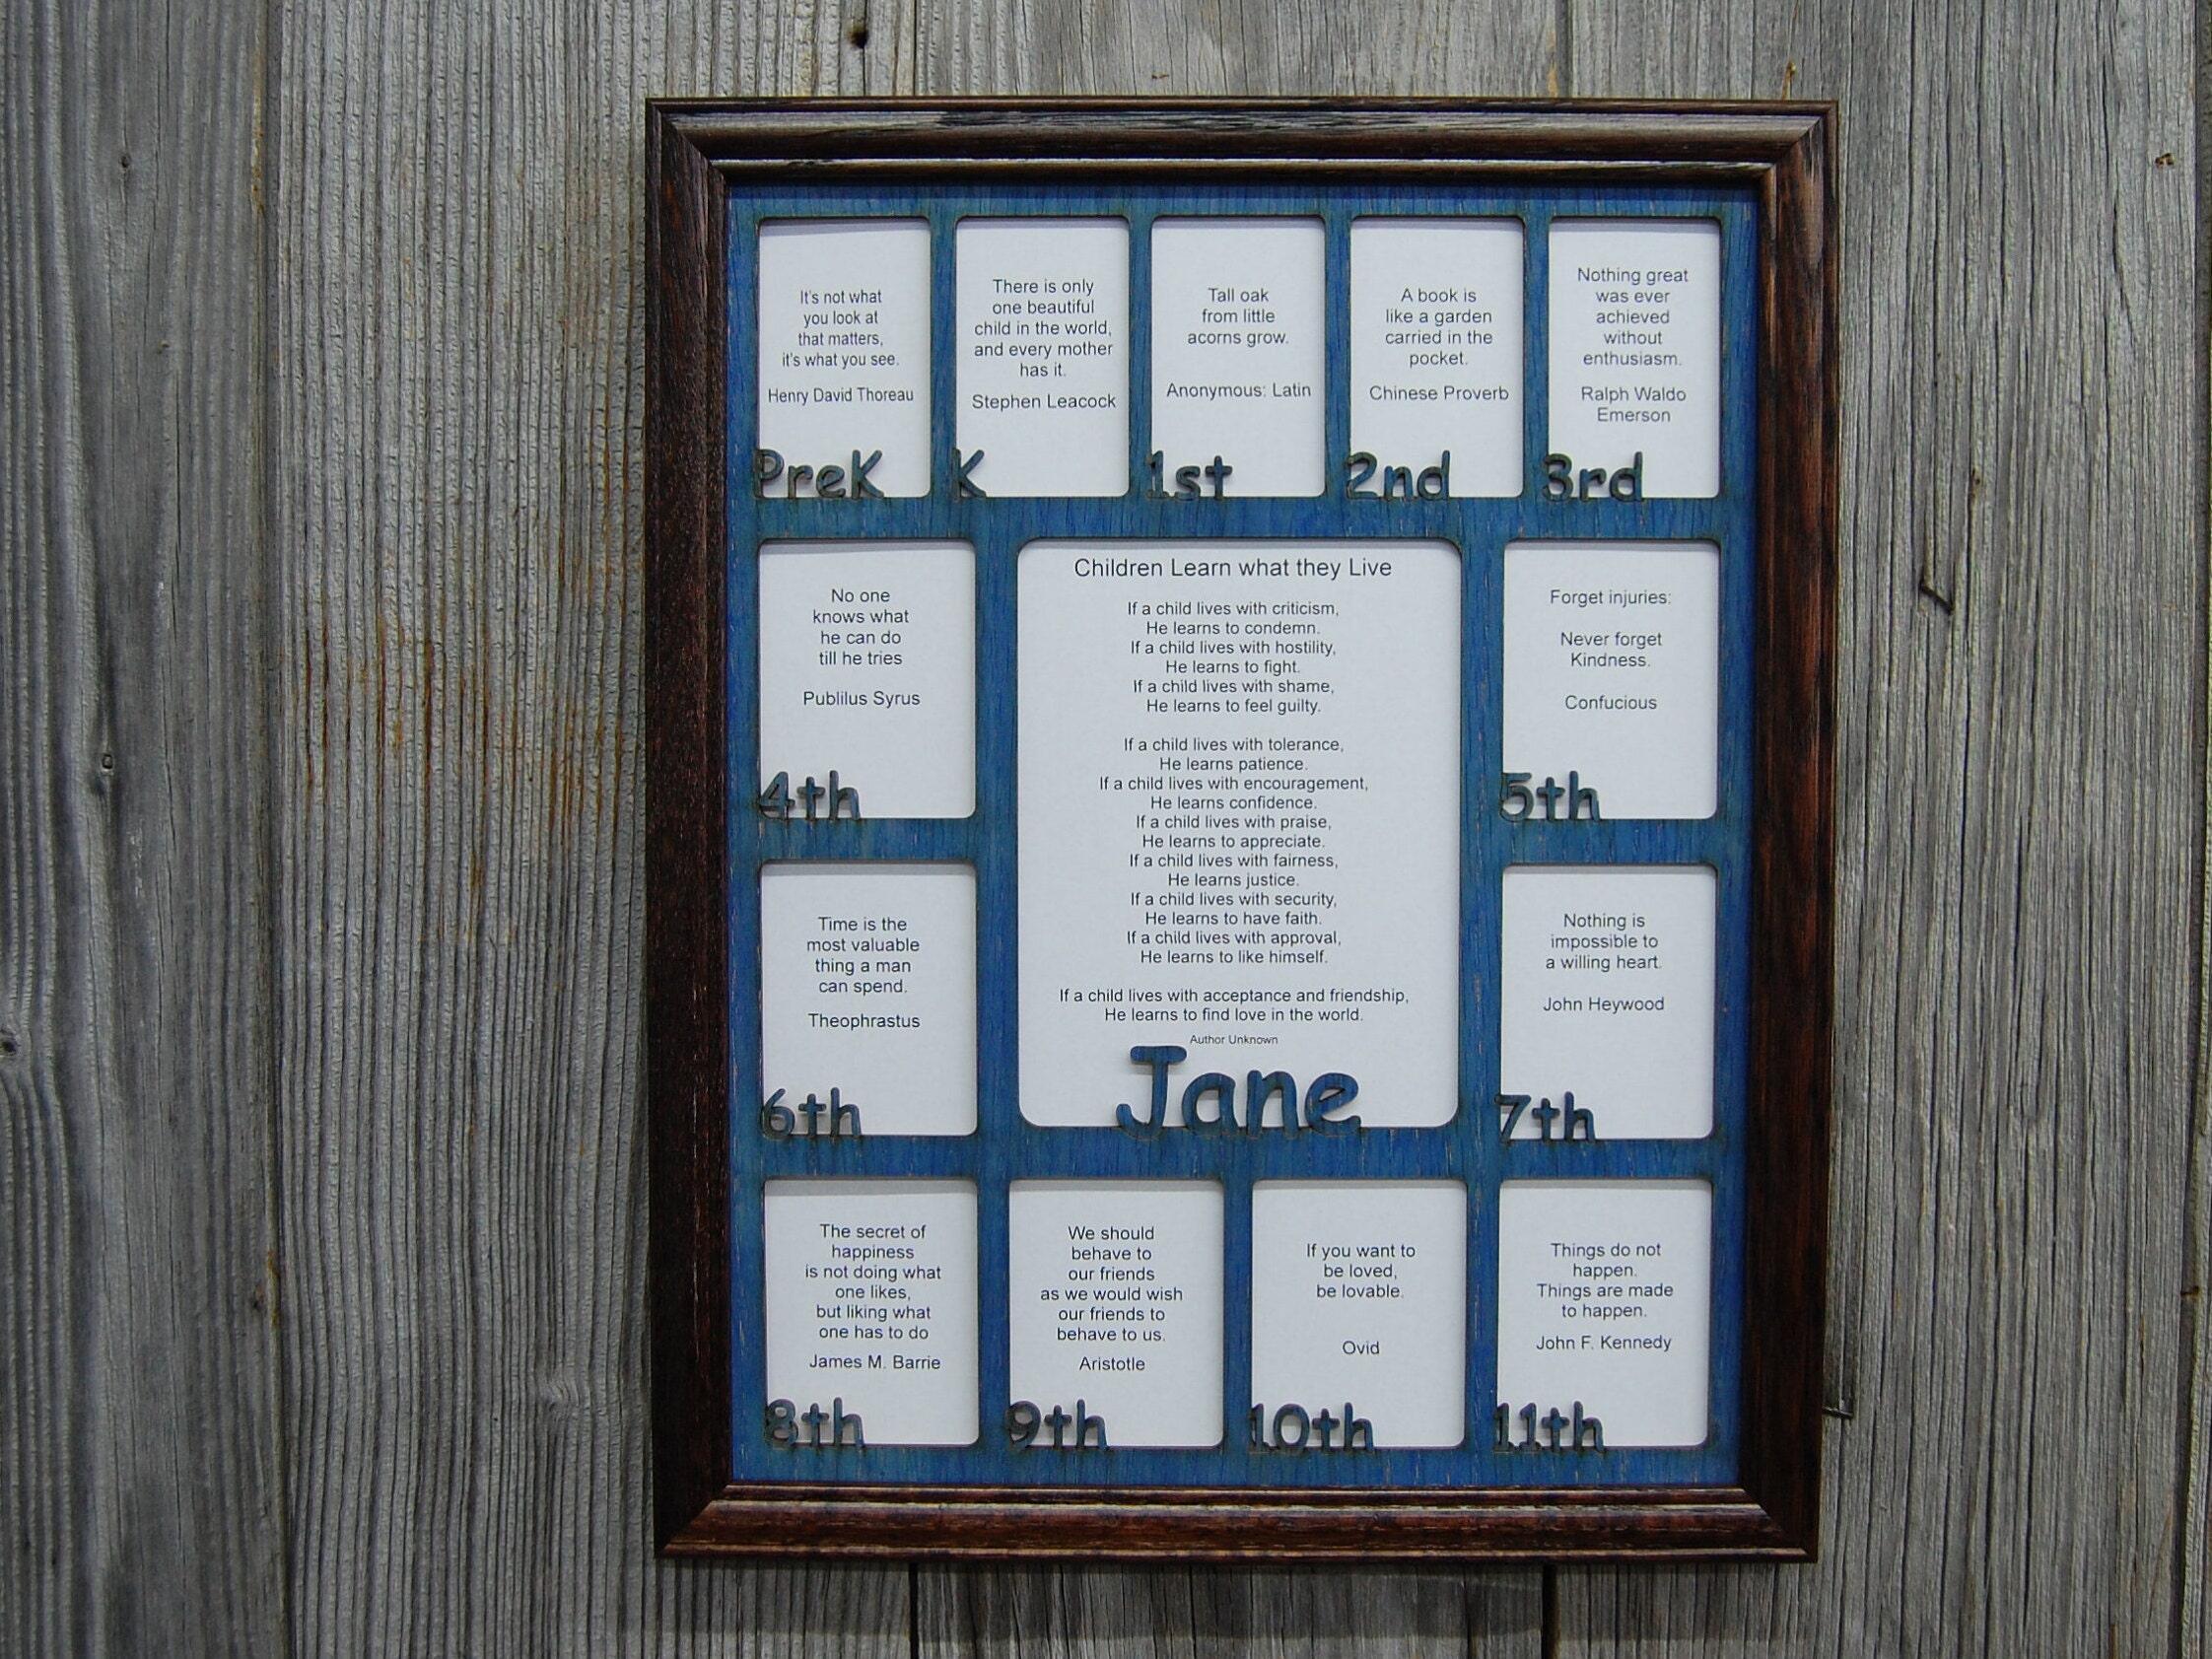 It's not what
you look at
that matters,
it's what you see.
Henry David Thoreau
PreK
There is only
one beautiful
child in the world,
and every mother
has it.
Stephen Leacock
K
Tall oak
from little
acorns grow.
Anonymous: Latin
1st
A book is
like a garden
carried in the
pocket.
Chinese Proverb
2nd
Nothing great
was ever
achieved
without
enthusiasm.
Ralph Waldo
Emerson
3rd
No one
knows what
he can do
till he tries
Publilus Syrus
4th
Children Learn what they Live
If a child lives with criticism,
He learns to condemn.
If a child lives with hostility,
He learns to fight.
If a child lives with shame,
He learns to feel guilty.
If a child lives with tolerance,
He learns patience.
If a child lives with encouragement,
He learns confidence.
If a child lives with praise,
He learns to appreciate.
If a child lives with fairness,
He learns justice.
If a child lives with security,
He learns to have faith.
If a child lives with approval,
He learns to like himself.
If a child lives with acceptance and friendship,
He learns to find love in the world.
Author Unknown
Jane
Forget injuries:
Never forget
Kindness.
Confucious
5th
Time is the
most valuable
thing a man
can spend.
Theophrastus
6th
Nothing is
impossible to
a willing heart.
John Heywood
7th
The secret of
happiness
is not doing what
one likes,
but liking what
one has to do
James M. Barrie
8th
We should
behave to
our friends
as we would wish
our friends to
behave to us.
Aristotle
9th
If you want to
be loved,
be lovable.
Ovid
10th
Things do not
happen.
Things are made
to happen.
John F. Kennedy
11th